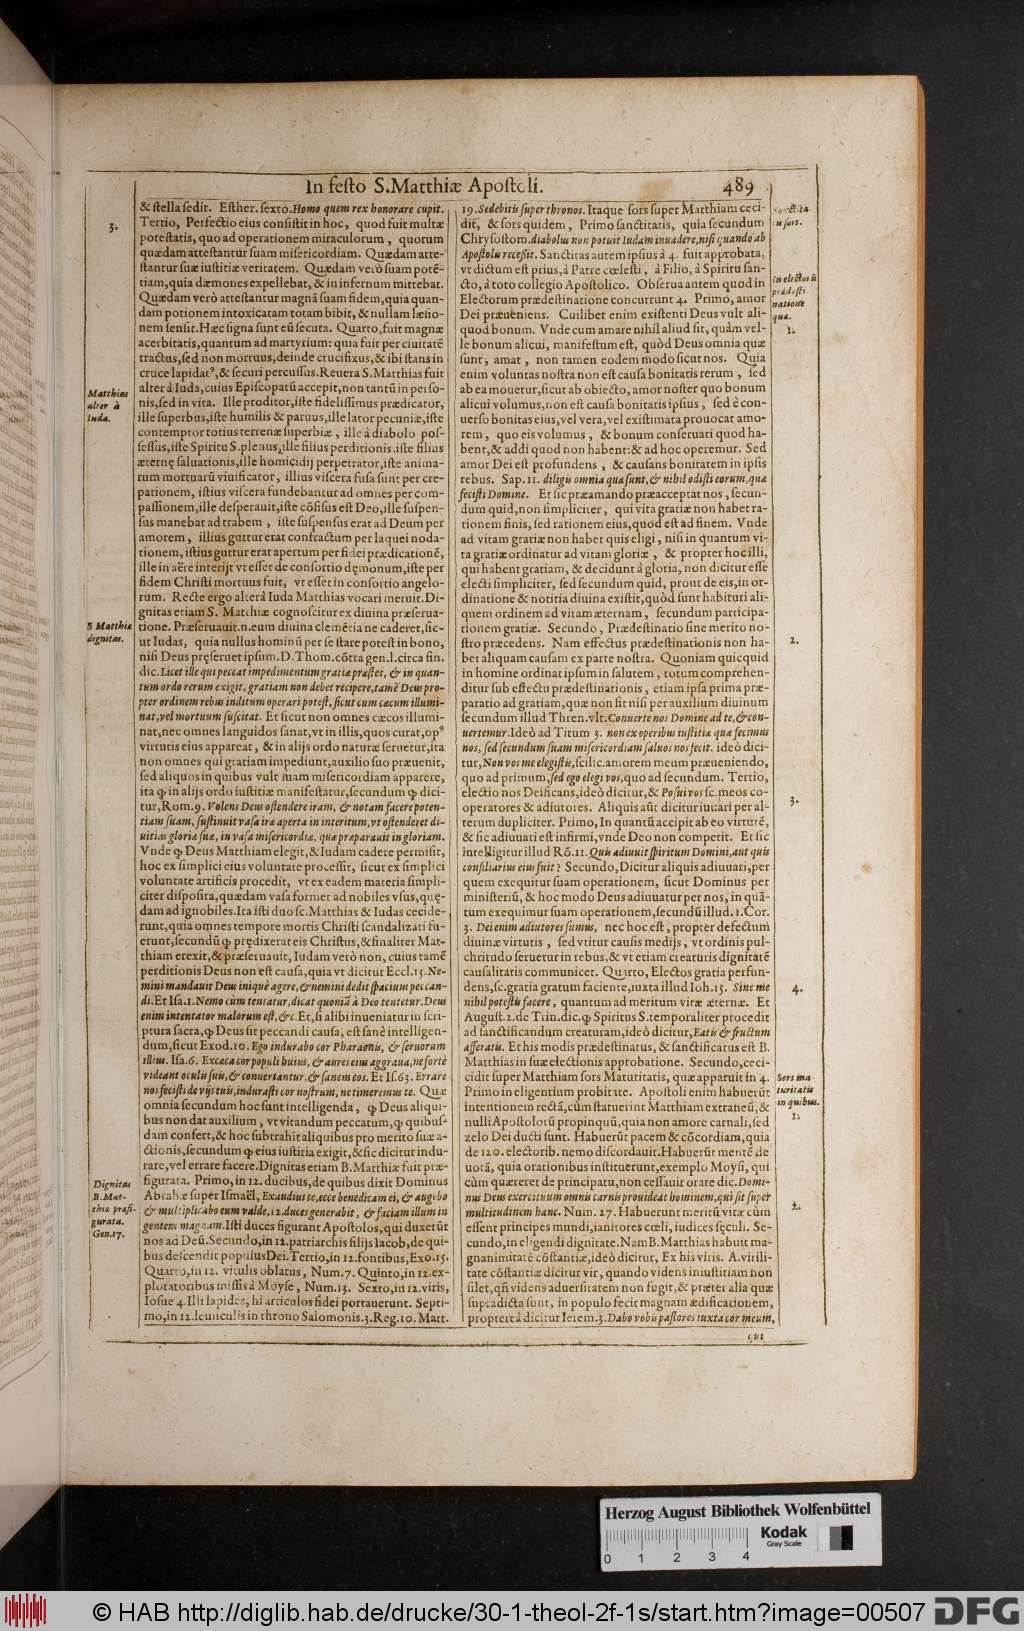 In festo S. Matthiæ Apostoli. 489
& stella sedit. Esther. sexto. Homo quem rex honorare cupit.
Tertio, Perfectio eius consistit in hoc, quod fuit multæ
potestatis, quo ad operationem miraculorum, quorum
quædam attestantur suam misericordiam. Quædam atte-
stantur suæ iustitiæ veritatem. Quædam verò suam potẽ-
tiam, quia dæmones expellebat, & in infernum mittebat.
Quædam verò attestantur magnã suam fidem, quia quan-
dam potionem intoxicatam totam bibit, & nullam læsio-
nem sensit. Hæc signa sunt eũ secuta. Quarto, fuit magnæ
acerbitatis, quantum ad martyrium: quia fuit per ciuitatẽ
tractus, sed non mortuus, deinde crucifixus, & ibi stans in
cruce lapidatꝰ, & securi percussus. Reuera S. Matthias fuit
alter à Iuda, cuius Episcopatũ accepit, non tantũ in perso-
nis, sed in vita. Ille proditor, iste fidelissimus prædicator,
ille superbus, iste humilis & paruus, ille lator pecuniæ, iste
contemptor totius terrenæ superbiæ, ille à diabolo pos-
sessus, iste Spiritu S. plenus, ille filius perditionis iste filius
æternę saluationis, ille homicidij perpetrator, iste anima-
rum mortuarũ viuificator, illius viscera fusa sunt per cre-
pationem, istius viscera fundebantur ad omnes per com-
passionem, ille desperauit, iste cõfisus est Deo, ille suspen-
sus manebat ad trabem, iste suspensus erat ad Deum per
amorem, illius guttur erat contractum per laquei noda-
tionem, istius guttur erat apertum per fidei prædicationẽ,
ille in aëre interijt vt esset de consortio dęmonum, iste per
fidem Christi mortuus fuit, vt esset in consortio angelo-
rum. Recte ergo alterà Iuda Matthias vocari meruit. Di-
gnitas etiam S. Matthiæ cognoscitur ex diuina præserua-
tione. Præseruauit. n. eum diuina clemẽtia ne caderet, sic-
ut Iudas, quia nullus hominũ per se stare potest in bono,
nisi Deus pręseruet ipsum. D. Thom. cõtra gen. l. circa fin.
dic. Licet ille qui peccat impedimentum gratiæ præstet, & in quan-
tum ordo rerum exigit, gratiam non debet recipere, tamẽ Deus pro-
pter ordinem rebus inditum operari potest, sicut cum cæcum illumi-
nat, vel mortuum suscitat. Et sicut non omnes cæcos illumi-
nat, nec omnes languidos sanat, vt in illis, quos curat, opꝰ
virtutis eius appareat, & in alijs ordo naturæ seruetur, ita
non omnes qui gratiam impediunt, auxilio suo præuenit,
sed aliquos in quibus vult suam misericordiam apparere,
ita ꝙ in alijs ordo iustitiæ manifestatur, secundum ꝙ dici-
tur, Rom. 9. Volens Deus ostendere iram, & notam facere poten-
tiam suam, sustinuit vasa iræ aperta in interitum, vt ostenderet di-
uitias gloriæ suæ, in vasa misericordiæ, quæ præparauit in gloriam.
Vnde ꝙ Deus Matthiam elegit, & Iudam cadere permisit,
hoc ex simplici eius voluntate processit, sicut ex simplici
voluntate artificis procedit, vt ex eadem materia simpli-
citer disposita, quædam vasa formet ad nobiles vsus, quę-
dam ad ignobiles. Ita isti duo sc. Matthias & Iudas cecide-
runt, quia omnes tempore mortis Christi scandalizati fu-
erunt, secundũ ꝙ prędixerat eis Christus, & finaliter Mat-
thiam erexit, & præseruauit, Iudam verò non, cuius tamẽ
perditionis Deus non est causa, quia vt dicitur Eccl. 15. Ne-
mini mandauit Deus iniquè agere, & nemini dedit spacium peccan-
di. Et Isa. 1. Nemo cùm tentatur, dicat quoniã à Deo tentetur. Deus
enim intentator malorum est, &c. Et, si alibi inueniatur in scri-
ptura sacra, ꝙ Deus sit peccandi causa, est sanè intelligen-
dum, sicut Exod. 10. Ego indurabo cor Pharaonis, & seruorum
illius. Isa. 6. Excæca cor populi huius, & aures eius aggraua, ne fortè
videant oculis suis, & conuertantur, & sanem eos. Et Is. 63. Errare
nos fecisti de vijs tuis, indurasti cor nostrum, ne timeremus te. Quæ
omnia secundum hoc sunt intelligenda, ꝙ Deus aliqui-
bus non dat auxilium, vt vitandum peccatum, ꝙ quibus-
dam confert, & hoc subtrahit aliquibus pro merito suæ a-
ctionis, secundum ꝙ eius iustitia exigit, & sic dicitur indu-
rare, vel errare facere. Dignitas etiam B. Matthiæ fuit præ-
figurata. Primo, in 12. ducibus, de quibus dixit Dominus
Abrahæ super Ismaël, Exaudiui te, ecce benedicam ei, & augebo
& multiplicabo eum valde, 12. duces generabit, & faciam illum in
gentem magnam. Isti duces figurant Apostolos, qui duxerũt
nos ad Deũ. Secundo, in 12. patriarchis filijs Iacob, de qui-
bus descendit populus Dei. Tertio, in 12. fontibus, Exo. 15.
Quarto, in 12. vitulis oblatus, Num. 7. Quinto, in 12. ex-
ploratoribus missis à Moyse, Num. 13. Sexto, in 12. viris,
Iosue 4. Illi lapides, hi articulos fidei portauerunt. Septi-
mo, in 12. leunculis in throno Salomonis. 3. Reg. 10. Matt.
3.
Matthias
alter à
Iuda.
S. Matthiæ
dignitas.
Dignitas
B. Mat-
thiæ præfi-
gurata.
Gen. 17.
19. Sedebitis super thronos. Itaque sors super Matthiam ceci-
dit, & sors quidem, Primo sanctitatis, quia secundum
Chrysostom. diabolus non potuit Iudam inuadere, nisi quando ab
Apostolis recessit. Sanctitas autem ipsius à 4. fuit approbata,
vt dictum est prius, à Patre cœlesti, à Filio, à Spiritu san-
cto, à toto collegio Apostolico. Obserua autem quod in
Electorum prædestinatione concurrunt 4. Primo, amor
Dei præueniens. Cuilibet enim existenti Deus vult ali-
quod bonum. Vnde cum amare nihil aliud sit, quàm vel-
le bonum alicui, manifestum est, quòd Deus omnia quæ
sunt, amat, non tamen eodem modo sicut nos. Quia
enim voluntas nostra non est causa bonitatis rerum, sed
ab ea mouetur, sicut ab obiecto, amor noster quo bonum
alicui volumus, non est causa bonitatis ipsius, sed è con-
uerso bonitas eius, vel vera, vel existimata prouocat amo-
rem, quo eis volumus, & bonum conseruari quod ha-
bent, & addi quod non habent: & ad hoc operemur. Sed
amor Dei est profundens, & causans bonitatem in ipsis
rebus. Sap. 11. diligis omnia quæ sunt, & nihil odisti eorum, quæ
fecisti Domine. Et sic præamando præacceptat nos, secun-
dum quid, non simpliciter, qui vita gratiæ non habet ra-
tionem finis, sed rationem eius, quod est ad finem. Vnde
ad vitam gratiæ non habet quis eligi, nisi in quantum vi-
ta gratiæ ordinatur ad vitam gloriæ, & propter hoc illi,
qui habent gratiam, & decidunt à gloria, non dicitur esse
electi simpliciter, sed secundum quid, prout de eis, in or-
dinatione & notitia diuina existit, quòd sunt habituri ali-
quem ordinem ad vitam æternam, secundum participa-
tionem gratiæ. Secundo, Prædestinatio sine merito no-
stro præcedens. Nam effectus prædestinationis non ha-
bet aliquam causam ex parte nostra. Quoniam quicquid
in homine ordinat ipsum in salutem, totum comprehen-
ditur sub effectu prædestinationis, etiam ipsa prima præ-
paratio ad gratiam, quæ non fit nisi per auxilium diuinum
secundum illud Thren. vlt. Conuerte nos Domine ad te, & con-
uertemur. Ideò ad Titum 3. non ex operibus iustitiæ quæ fecimus
nos, sed secundum suam misericordiam saluos nos fecit. ideò dici-
tur, Non vos me elegistis, scilic. amorem meum præueniendo,
quo ad primum, sed ego elegi vos, quo ad secundum. Tertio,
electio nos Deificans, ideò dicitur, & Posui vos sc. meos co-
operatores & adiutores. Aliquis aũt dicitur iuuari per al-
terum dupliciter. Primo, In quantũ accipit ab eo virtutẽ,
& sic adiuuari est infirmi, vnde Deo non competit. Et sic
intelligitur illud Rõ. 11. Quis adiuuit spiritum Domini, aut quis
consiliarius eius fuit? Secundo, Dicitur aliquis adiuuari, per
quem exequitur suam operationem, sicut Dominus per
ministeriũ, & hoc modo Deus adiuuatur per nos, in quã-
tum exequimur suam operationem, secundũ illud. 1. Cor.
3. Dei enim adiutores sumus, nec hoc est, propter defectum
diuinæ virtutis, sed vtitur causis medijs, vt ordinis pul-
chritudo seruetur in rebus, & vt etiam creaturis dignitatẽ
causalitatis communicet. Quarto, Electos gratia perfun-
dens, sc. gratia gratum faciente, iuxta illud Ioh. 15. Sine me
nihil potestis facere, quantum ad meritum vitæ æternæ. Et
August. 2. de Trin. dic. ꝙ Spiritus S. temporaliter procedit
ad sanctificandum creaturam, ideò dicitur, Eatis & fructum
afferatis. Et his modis prædestinatus, & sanctificatus est B.
Matthias in suæ electionis approbatione. Secundo, ceci-
cidit super Matthiam sors Maturitatis, quæ apparuit in 4.
Primo in eligentium probitate. Apostoli enim habuerũt
intentionem rectã, cùm statuerint Matthiam extraneũ, &
nulli Apostolorũ propinquũ, quia non amore carnali, sed
zelo Dei ducti sunt. Habuerũt pacem & cõcordiam, quia
de 120. electorib. nemo discordauit. Habuerũt mentẽ de
uotã, quia orationibus instituerunt, exemplo Moysi, qui
cùm quæreret de principatu, non cessauit orare dic. Domi-
nus Deus exercituum omnis carnis prouideat hominem, qui sit super
multitudinem hanc. Num. 27. Habuerunt meritũ vitæ cùm
essent principes mundi, ianitores cœli, iudices sęculi. Se-
cundo, in eligendi dignitate. Nam B. Matthias habuit ma-
gnanimitatẽ cõstantiæ, ideò dicitur, Ex his viris. A. virili-
tate cõstantiæ dicitur vir, quando videns iniustitiam non
silet, qñ videns aduersitatem non fugit, & præter alia quæ
supradicta sunt, in populo fecit magnam ædificationem,
propterea dicitur Ierem. 3. Dabo vobis pastores iuxta cor meum,
qui
Sanctita-
tis sors.
In electorũ
prædesti-
natione
quæ.
1.
2.
3.
4.
Sors ma-
turitatis
in quibus.
1.
2.
Herzog August Bibliothek Wolfenbüttel
Kodak
Gray Scale
0 1 2 3 4
© HAB http://diglib.hab.de/drucke/30-1-theol-2f-1s/start.htm?image=00507
DFG